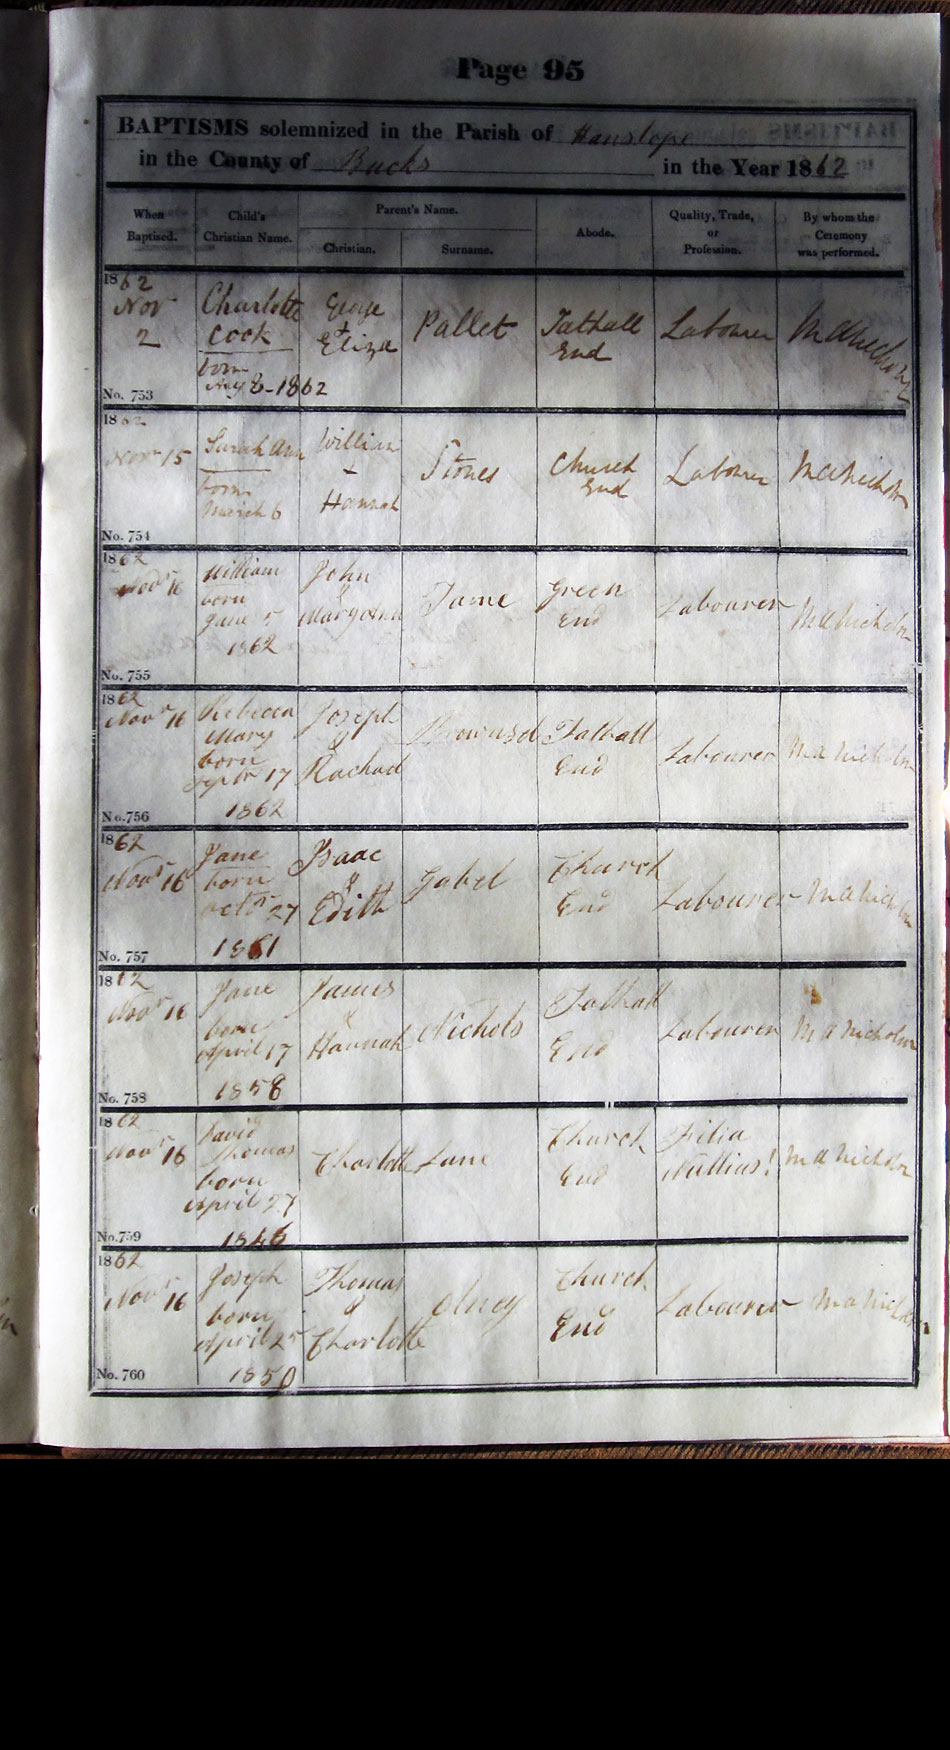 Page 95
BAPTISMS solemnized in the Parish of Hanslope
in the County of Bucks in the Year 1862
When Baptised. Child's Christian Name. Parent's Name. Christian. Surname. Abode. Quality, Trade, or Profession. By whom the Ceremony was performed.
1862
Nov
2
No. 753
Charlotte
Cook
born
8-1862
George
+
Eliza
Pallet
Tathall
End
Labourer
M A Nicholson
1862
Novr 15
No. 754
Sarah Ann
born
March 6
William
+
Hannah
Stones
Church
End
Labourer
M A Nicholson
1862
Novr 16
No. 755
William
born
June 5
1862
John
&
Maryann
Tame
Green
End
Labourer
M A Nicholson
1862
Novr 16
No. 756
Rebecca
Mary
born
Septr 17
1862
Joseph
&
Rachael
Tathall
End
Labourer
M A Nicholson
1862
Novr 16
No. 757
Jane
born
Octr 27
1861
Isaac
&
Edith
Gabel
Church
End
Labourer
M A Nicholson
1862
Novr 16
No. 758
Jane
born
April 17
1858
James
&
Hannah
Nichols
Tathall
End
Labourer
M A Nicholson
1862
Novr 16
No. 759
David
Thomas
born
April 27
Charlotte
Lane
Church
End
Filia
Nullius!
M A Nicholson
1862
Novr 16
No. 760
Joseph
born
April 25
1850
Thomas
&
Charlotte
Olney
Church
End
Labourer
M A Nicholson